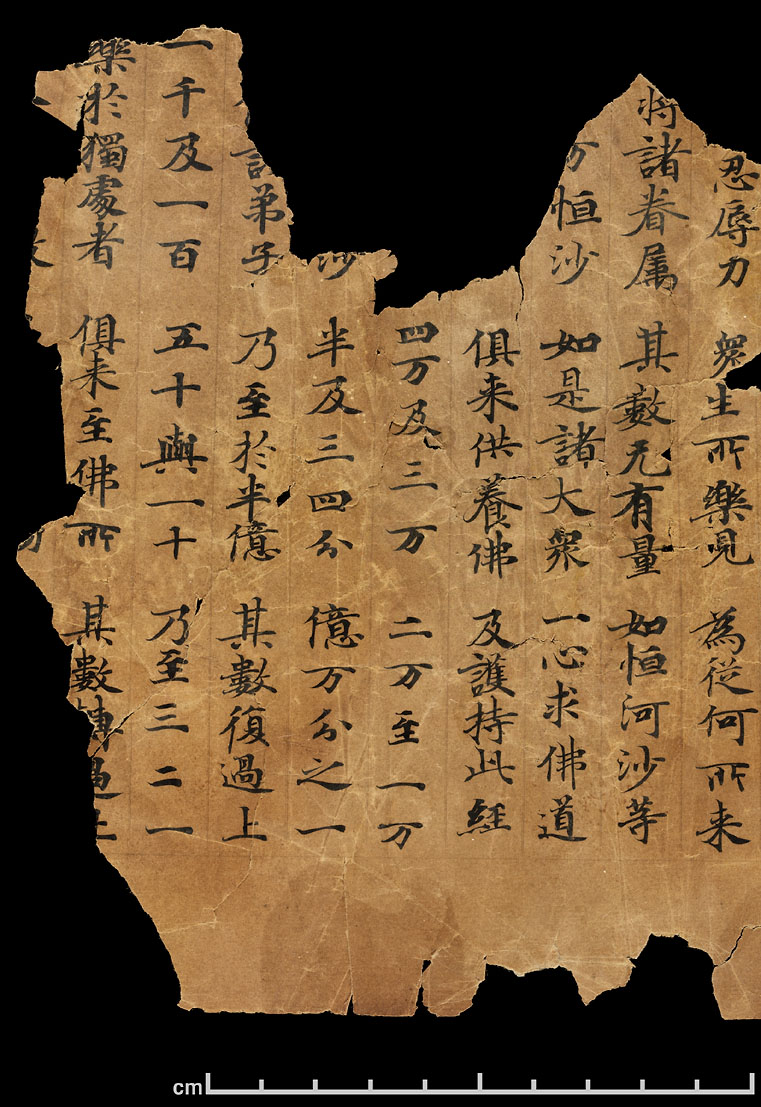 忍辱力 衆生所樂見 為從何所来
将諸眷属 其數无有量 如恒河沙等
万恒沙 如是諸大衆 一心求佛道
俱来供養佛 及護持此經
四万及三万 二万至一万
沙 半及三四分 億万分之一
弟子 乃至於半億 其數復過上
一千及一百 五十與一十 乃至三二一
樂於獨處者 俱来至佛所 其數轉過上
cm